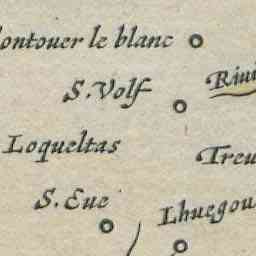 ontouer le blanc
S. Volf
Loqueltas
Treu
S. Eue
Lhuegou